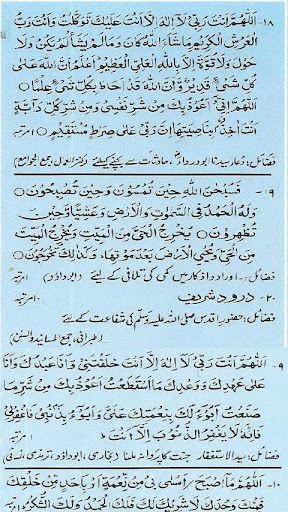 ۱۸- اَللّٰهُمَّ اَنْتَ رَبِّیْ لَا اِلٰهَ اِلَّا اَنْتَ عَلَیْكَ تَوَكَّلْتُ وَاَنْتَ رَبُّ
الْعَرْشِ الْكَرِیْمِ مَاشَآءَ اللّٰهُ كَانَ وَمَالَمْ یَشَأْلَمْ یَكُنْ وَلَا
حَوْلَ وَلَا قُوَّةَ اِلَّا بِاللّٰهِ الْعَلِیِّ الْعَظِیْمِ اَعْلَمُ اَنَّ اللّٰهَ عَلٰی
كُلِّ شَیْءٍ قَدِیْرٌ وَّاَنَّ اللّٰهَ قَدْ اَحَاطَ بِكُلِّ شَیْءٍ عِلْمًا ○
اَللّٰهُمَّ اِنِّیْ اَعُوْذُبِكَ مِنْ شَرِّ نَفْسِیْ وَمِنْ شَرِّ كُلِّ دَآبَّةٍ
اَنْتَ اٰخِذٌۢ بِنَاصِیَتِهَا اِنَّ رَبِّیْ عَلٰی صِرَاطٍ مُّسْتَقِیْمٍ ○ ۱ مرتبہ
فضائل: دعاء سیدنا ابودرداءؓ، حادثات سے بچنے کیلئے
۱۹- فَسُبْحٰنَ اللّٰهِ حِیْنَ تُمْسُوْنَ وَحِیْنَ تُصْبِحُوْنَ ○
وَلَهُ الْحَمْدُ فِی السَّمٰوٰتِ وَالْاَرْضِ وَعَشِیًّا وَّحِیْنَ
تُظْهِرُوْنَ ○ یُخْرِجُ الْحَیَّ مِنَ الْمَیِّتِ وَیُخْرِجُ الْمَیِّتَ
مِنَ الْحَیِّ وَیُحْیِ الْاَرْضَ بَعْدَ مَوْتِهَا وَكَذٰلِكَ تُخْرَجُوْنَ ○
فضائل:- اوراد و اذکار میں کمی کی تلافی کے لیئے (ابوداؤد) ۱ مرتبہ
۲۰- درود شریف ۱۰ مرتبہ
فضائل: حضور اقدس صلی اللہ علیہ وسلم کی شفاعت کے لئے
(طبرانی، جمع المسانید والسنن)
۹- اَللّٰهُمَّ اَنْتَ رَبِّیْ لَا اِلٰهَ اِلَّا اَنْتَ خَلَقْتَنِیْ وَاَنَا عَبْدُكَ وَاَنَا
عَلٰی عَهْدِكَ وَوَعْدِكَ مَااسْتَطَعْتُ اَعُوْذُبِكَ مِنْ شَرِّمَا
صَنَعْتُ اَبُوْءُ لَكَ بِنِعْمَتِكَ عَلَیَّ وَاَبُوْءُ بِذَنْۢبِیْ فَاغْفِرْلِیْ
فَاِنَّهٗ لَا یَغْفِرُ الذُّنُوْبَ اِلَّا اَنْتَ ○ ۱ مرتبہ
فضائل: سید الاستغفار جنت کا پروانہ ملنا (بخاری، ابوداؤد، ترمذی، نسائی)
۱۰- اَللّٰهُمَّ مَا اَصْبَحَ / اَمْسٰی بِیْ مِنْ نِّعْمَةٍ اَوْ بِاَحَدٍ مِّنْ خَلْقِكَ
فَمِنْكَ وَحْدَكَ لَا شَرِیْكَ لَكَ فَلَكَ الْحَمْدُ وَلَكَ الشُّكْرُ